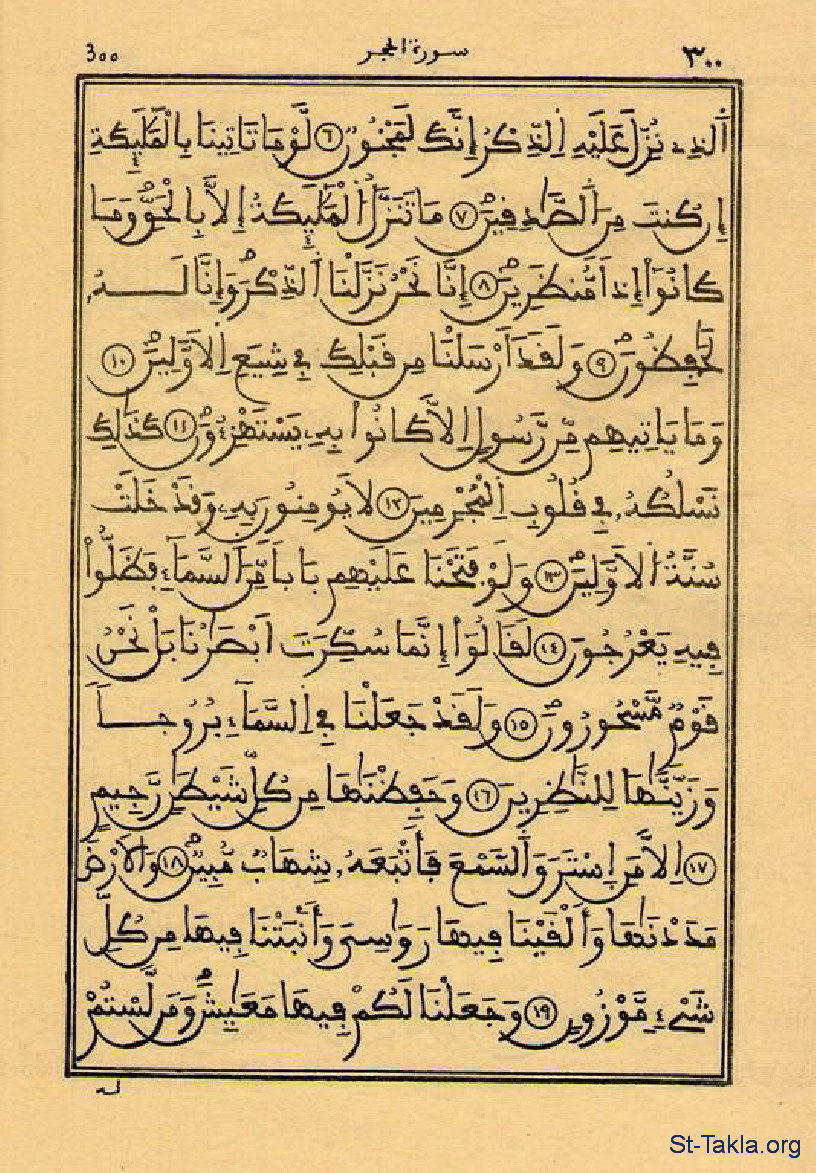 ٣٠٠ سورة الحجر 300
اَ۬لذِے نُزِّلَ عَلَيْهِ اِ۬لذِّكْرُ إِنَّكَ لَمَجْنُونٞ ٦ لَّوْ مَا تَاتِينَا بِالْمَلَٰٓئِكَةِ
إِن كُنتَ مِنَ اَ۬لصَّٰدِقِينَۖ ٧ مَا تَنَزَّلُ اُ۬لْمَلَٰٓئِكَةُ إِلَّا بِالْحَقِّۖ وَمَا
كَانُوٓاْ إِذاٗ مُّنظَرِينَۖ ٨ إِنَّا نَحْنُ نَزَّلْنَا اَ۬لذِّكْرَ وَإِنَّا لَهُۥ
لَحَٰفِظُونَۖ ٩ وَلَقَدَ اَرْسَلْنَا مِن قَبْلِكَ فِے شِيَعِ اِ۬لَاوَّلِينَۖ ١٠
وَمَا يَاتِيهِم مِّن رَّسُولٍ اِلَّا كَانُواْ بِهِۦ يَسْتَهْزِءُونَۖ ١١ كَذَٰلِكَ
نَسْلُكُهُۥ فِے قُلُوبِ اِ۬لْمُجْرِمِينَ ١٢ لَا يُومِنُونَ بِهِۦ وَقَدْ خَلَتْ
سُنَّةُ اُ۬لَاوَّلِينَۖ ١٣ وَلَوْ فَتَحْنَا عَلَيْهِم بَاباٗ مِّنَ اَ۬لسَّمَآءِ فَظَلُّواْ
فِيهِ يَعْرُجُونَ ١٤ لَقَالُوٓاْ إِنَّمَا سُكِّرَتَ اَبْصَٰرُنَا بَلْ نَحْنُ
قَوْمٞ مَّسْحُورُونَۖ ١٥ وَلَقَدْ جَعَلْنَا فِے اِ۬لسَّمَآءِ بُرُوجاٗ
وَزَيَّنَّٰهَا لِلنَّٰظِرِينَ ١٦ وَحَفِظْنَٰهَا مِن كُلِّ شَيْطَٰنٖ رَّجِيمٍ
١٧ اِلَّا مَنِ اِ۪سْتَرَقَ اَ۬لسَّمْعَ فَأَتْبَعَهُۥ شِهَابٞ مُّبِينٞۖ ١٨ وَالَارْضَ
مَدَدْنَٰهَا وَأَلْقَيْنَا فِيهَا رَوَٰسِيَ وَأَنۢبَتْنَا فِيهَا مِن كُلِّ
شَےْءٖ مَّوْزُونٖ ١٩ وَجَعَلْنَا لَكُمْ فِيهَا مَعَٰيِشَۖ وَمَن لَّسْتُمْ
لـه
St-Takla.org